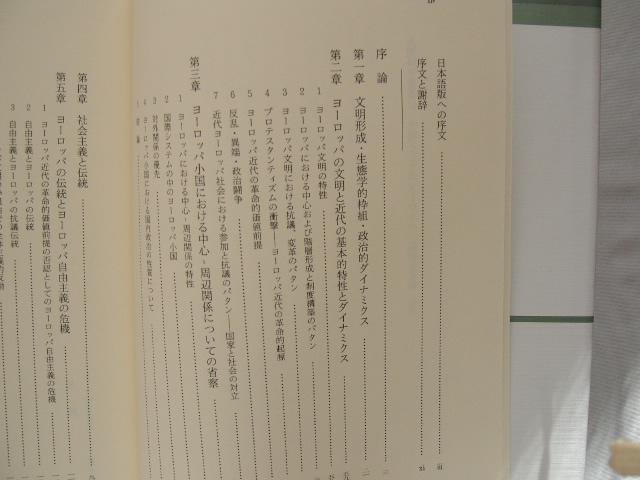 日本語版への序文 iii
序文と謝辞 xi
序論
第一章 文明形成・生態学的枠組・政治的ダイナミクス
第二章 ヨーロッパの文明と近代の基本的特性とダイナミクス
1 ヨーロッパ文明の特性
2 ヨーロッパにおける中心および階層形成と制度構築のパタン
3 ヨーロッパ文明における抗議、変革のパタン
4 プロテスタンティズムの衝撃──ヨーロッパ近代の革命的起源
5 ヨーロッパ近代の革命的価値前提
6 反乱・異端・政治闘争
7 近代ヨーロッパ社会における参加と抗議のパタン──国家と社会の対立
第三章 ヨーロッパ小国における中心‐周辺関係についての省察
1 ヨーロッパにおける中心‐周辺関係の特性
2 国際システムの中のヨーロッパ小国
3 対外関係の優先
4 ヨーロッパ小国における国内政治の性質について
5 結論
第四章 社会主義と伝統
第五章 ヨーロッパの伝統とヨーロッパ自由主義の危機
1 ヨーロッパ近代の革命的価値前提の否認としてのヨーロッパ自由主義の危機
2 自由主義とヨーロッパの伝統
3 自由主義とヨーロッパの抗議伝統